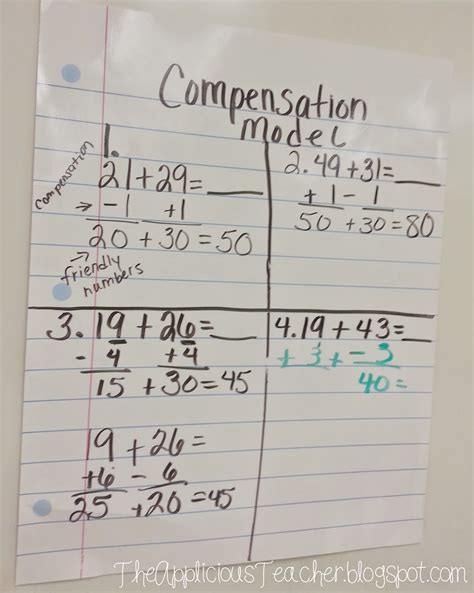 Compensation
Model
1.
compensation
21+29=____
→ -1 +1
20 + 30 = 50
→
friendly
numbers
2. 49 +31=____
+ 1 - 1
50 +30=80
3. 19 + 26=__
- 4 +4
15 +30=45
19 + 26=
+6 - 6
25 +20=45
4. 19 + 43=__
+ 3 + - 3
40=
TheAppliciousTeacher.blogspot.com